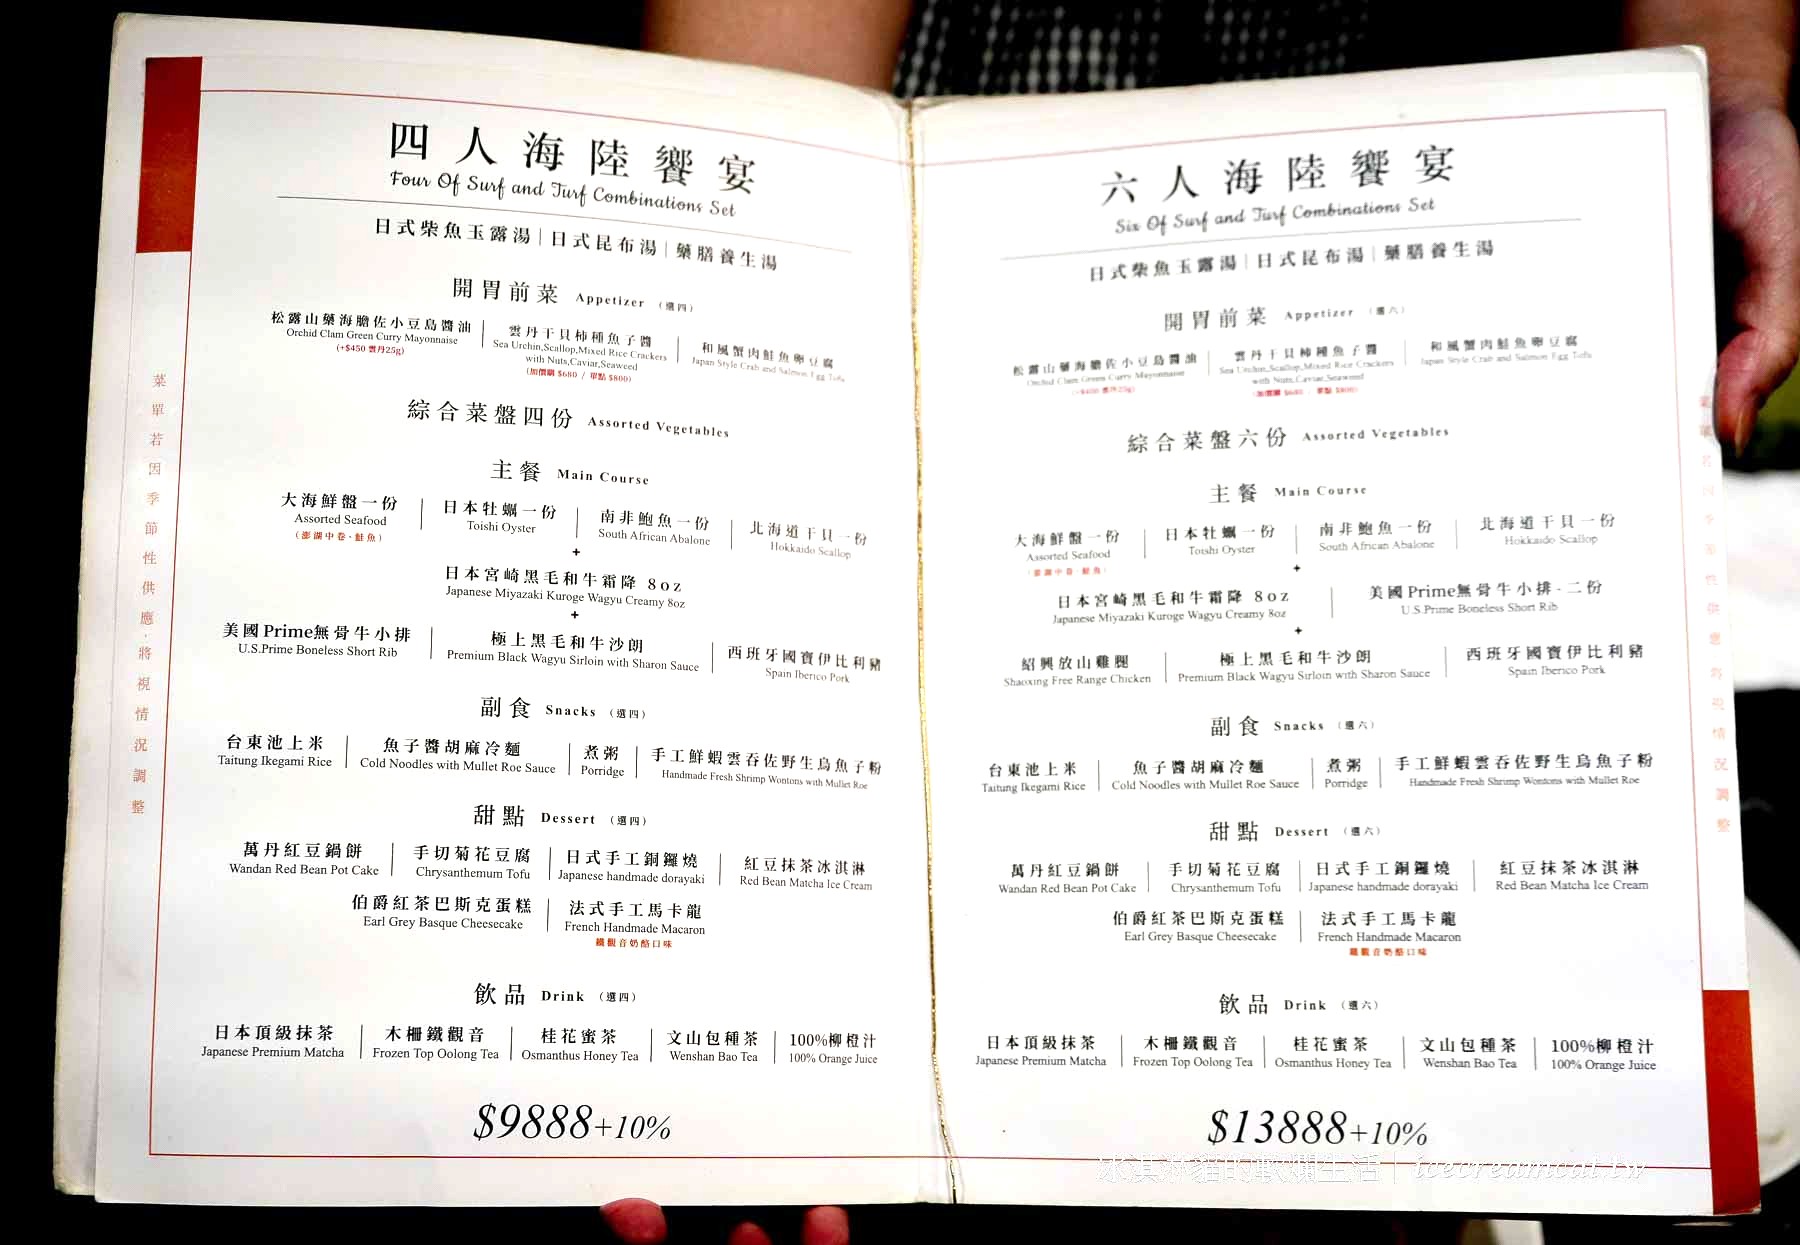 四人海陸饗宴
Four Of Surf and Turf Combinations Set
日式柴魚玉露湯|日式昆布湯|藥膳養生湯
開胃前菜 Appetizer (選四)
松露山藥海膽佐小豆島醬油
Orchid Clam Green Curry Mayonnaise
(+$450 雲丹25g)
雲丹干貝柿種魚子醬
Sea Urchin,Scallop,Mixed Rice Crackers
with Nuts,Caviar,Seaweed
(加價購 $680 / 單點 $800)
和風蟹肉鮭魚卵豆腐
Japan Style Crab and Salmon Egg Tofu
綜合菜盤四份 Assorted Vegetables
主餐 Main Course
大海鮮盤一份
Assorted Seafood
(澎湖中卷·鮭魚)
日本牡蠣一份
Toishi Oyster
南非鮑魚一份
South African Abalone
北海道干貝一份
Hokkaido Scallop
+
日本宮崎黑毛和牛霜降 8oz
Japanese Miyazaki Kuroge Wagyu Creamy 8oz
+
美國Prime無骨牛小排
U.S.Prime Boneless Short Rib
極上黑毛和牛沙朗
Premium Black Wagyu Sirloin with Sharon Sauce
西班牙國寶伊比利豬
Spain Iberico Pork
副食 Snacks (選四)
台東池上米
Taitung Ikegami Rice
魚子醬胡麻冷麵
Cold Noodles with Mullet Roe Sauce
煮粥
Porridge
手工鮮蝦雲吞佐野生烏魚子粉
Handmade Fresh Shrimp Wontons with Mullet Roe
甜點 Dessert (選四)
萬丹紅豆鍋餅
Wandan Red Bean Pot Cake
手切菊花豆腐
Chrysanthemum Tofu
日式手工銅鑼燒
Japanese handmade dorayaki
紅豆抹茶冰淇淋
Red Bean Matcha Ice Cream
伯爵紅茶巴斯克蛋糕
Earl Grey Basque Cheesecake
法式手工馬卡龍
French Handmade Macaron
鐵觀音奶酪口味
飲品 Drink (選四)
日本頂級抹茶
Japanese Premium Matcha
木柵鐵觀音
Frozen Top Oolong Tea
桂花蜜茶
Osmanthus Honey Tea
文山包種茶
Wenshan Bao Tea
100%柳橙汁
100% Orange Juice
$9888+10%
菜單若因季節性供應·將視情況調整
六人海陸饗宴
Six Of Surf and Turf Combinations Set
日式柴魚玉露湯|日式昆布湯|藥膳養生湯
開胃前菜 Appetizer (選六)
松露山藥海膽佐小豆島醬油
Orchid Clam Green Curry Mayonnaise
(+$450 雲丹25g)
雲丹干貝柿種魚子醬
Sea Urchin,Scallop,Mixed Rice Crackers
with Nuts,Caviar,Seaweed
(加價購 $680 / 單點 $800)
和風蟹肉鮭魚卵豆腐
Japan Style Crab and Salmon Egg Tofu
綜合菜盤六份 Assorted Vegetables
主餐 Main Course
大海鮮盤一份
Assorted Seafood
(澎湖中卷·鮭魚)
日本牡蠣一份
Toishi Oyster
南非鮑魚一份
South African Abalone
北海道干貝一份
Hokkaido Scallop
+
日本宮崎黑毛和牛霜降 8oz
Japanese Miyazaki Kuroge Wagyu Creamy 8oz
美國Prime無骨牛小排·二份
U.S.Prime Boneless Short Rib
+
紹興放山雞腿
Shaoxing Free Range Chicken
極上黑毛和牛沙朗
Premium Black Wagyu Sirloin with Sharon Sauce
西班牙國寶伊比利豬
Spain Iberico Pork
副食 Snacks (選六)
台東池上米
Taitung Ikegami Rice
魚子醬胡麻冷麵
Cold Noodles with Mullet Roe Sauce
煮粥
Porridge
手工鮮蝦雲吞佐野生烏魚子粉
Handmade Fresh Shrimp Wontons with Mullet Roe
甜點 Dessert (選六)
萬丹紅豆鍋餅
Wandan Red Bean Pot Cake
手切菊花豆腐
Chrysanthemum Tofu
日式手工銅鑼燒
Japanese handmade dorayaki
紅豆抹茶冰淇淋
Red Bean Matcha Ice Cream
伯爵紅茶巴斯克蛋糕
Earl Grey Basque Cheesecake
法式手工馬卡龍
French Handmade Macaron
鐵觀音奶酪口味
飲品 Drink (選六)
日本頂級抹茶
Japanese Premium Matcha
木柵鐵觀音
Frozen Top Oolong Tea
桂花蜜茶
Osmanthus Honey Tea
文山包種茶
Wenshan Bao Tea
100%柳橙汁
100% Orange Juice
$13888+10%
菜單若因季節性供應 將視情況調整
冰淇淋貓的軟爛生活 | icecreamcat.tw